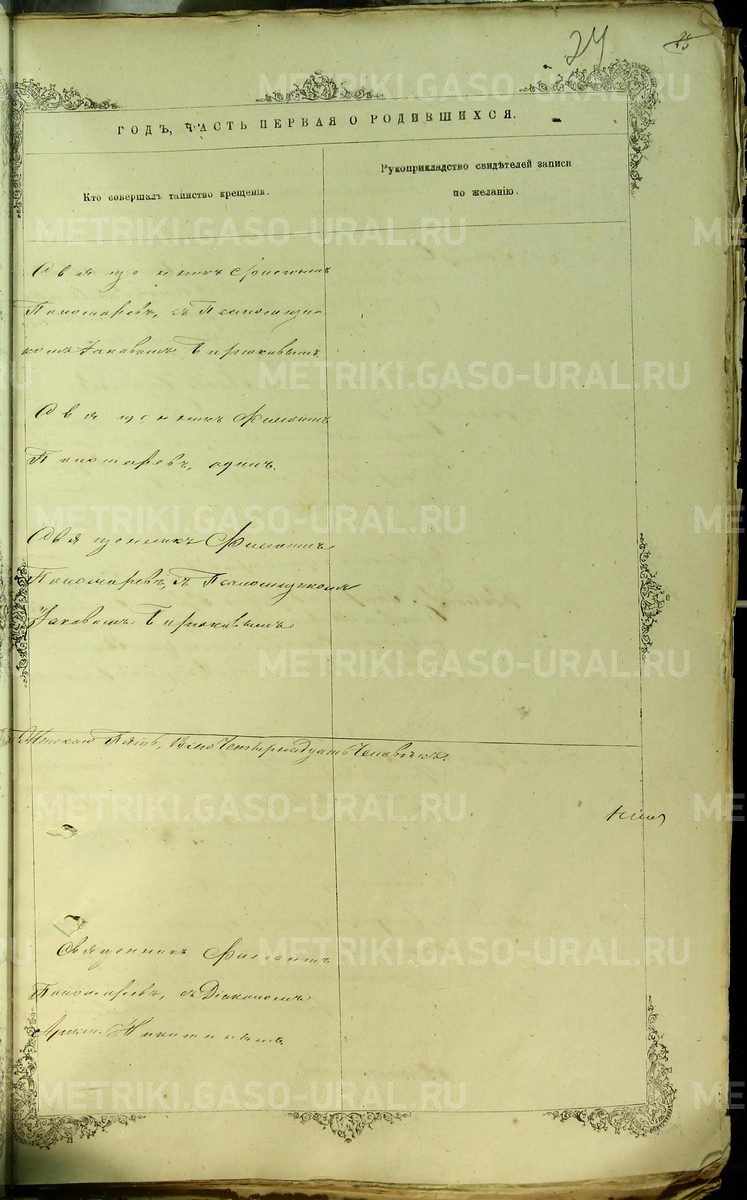 24
25
ГОДЪ, ЧАСТЬ ПЕРВАЯ О РОДИВШИХСЯ.
Кто совершалъ таинство крещенія.
Рукоприкладство свидѣтелей записи
по желанію.
Священникъ Филетъ
Пономаревъ, съ Псаломщи-
комъ Іаковомъ Бирюковымъ
Священникъ
Пономаревъ, одинъ.
Священникъ
Пономаревъ, съ Псаломщикомъ
Іаковомъ Бирюковымъ.
Женскаго Пять, Всего Четырнадцать Человѣкъ.
Священникъ
Пономаревъ, съ Діакономъ
Никитинымъ.
METRIKI.GASO-URAL.RU
METRIKI.GASO-URAL.RU
METRIKI.GASO-URAL.RU
METRIKI.GASO-URAL.RU
METRIKI.GASO-URAL.RU
METRIKI.GASO-URAL.RU
METRIKI.GASO-URAL.RU
METRIKI.GASO-URAL.RU